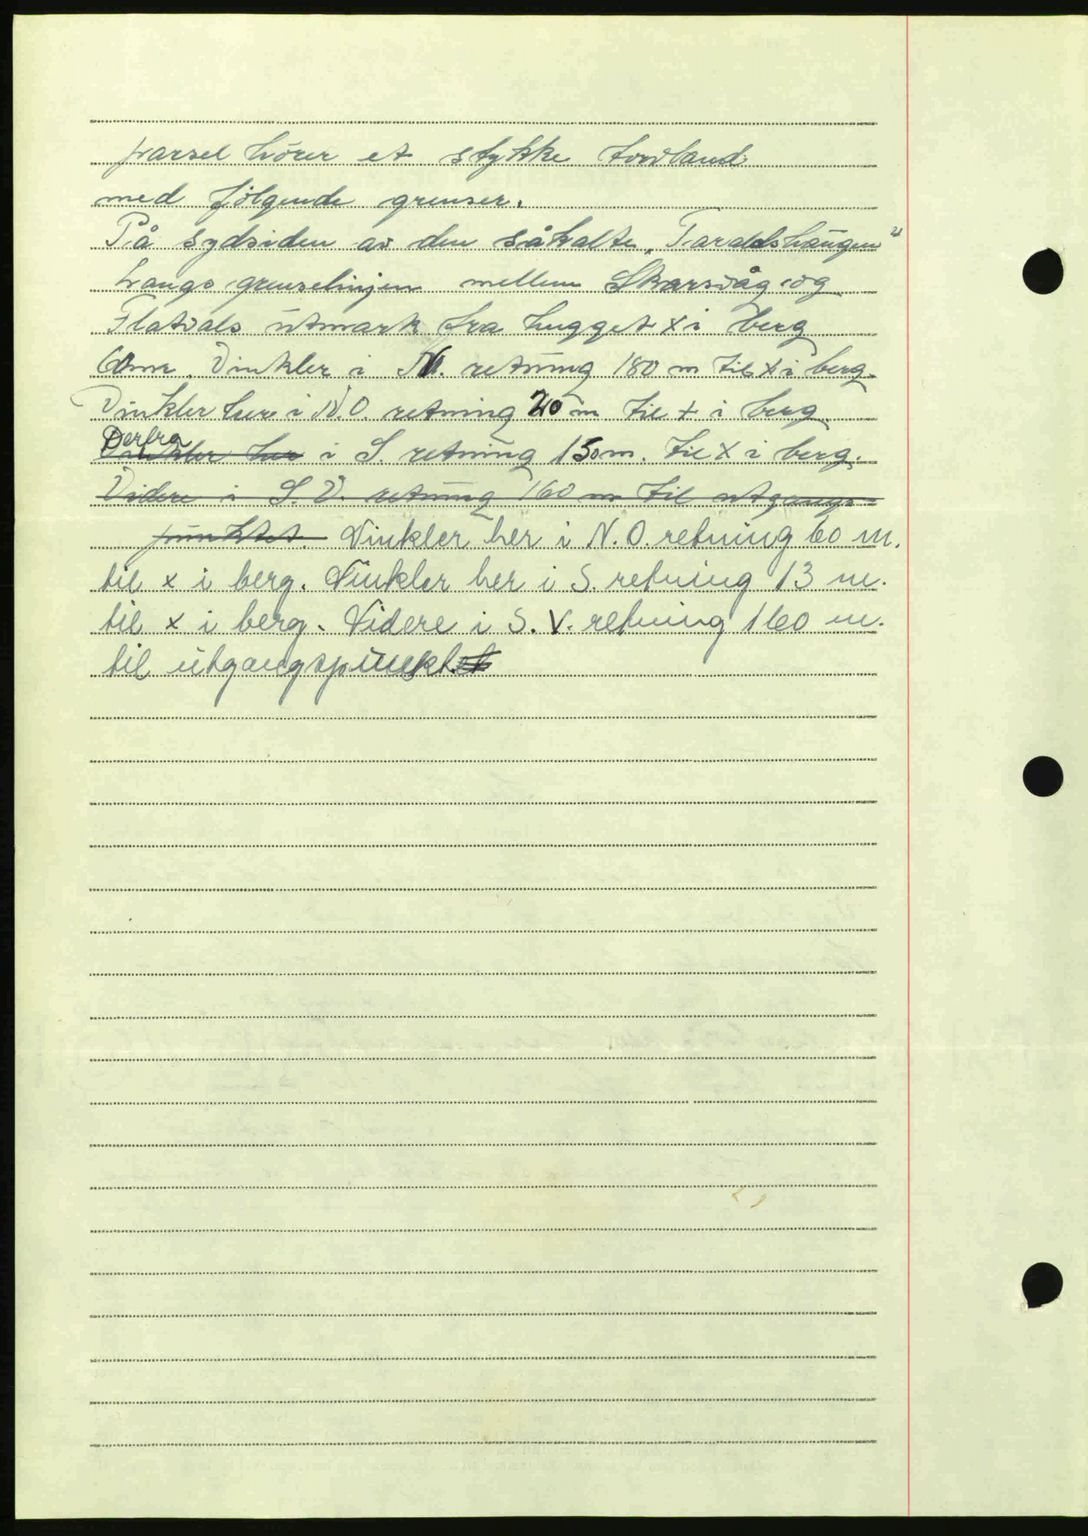 parsel hörer et stykke torvland
med følgende grenser.
På sydsiden av den såkalte „Taraldshaugen"
langs grenselinjen mellem Skarsvåg og
Flatvals utmark fra hugget x i berg
60 m. Vinkler i N. retning 180 m til x i berg.
Vinkler her i N.O. retning 20 m til + i berg
Derfra
Vinkler her i S. retning 150 m. til x i berg.
Videre i S.V. retning 160 m til utgangs-
punktet. Vinkler her i N.O. retning 60 m.
til x i berg. Vinkler her i S. retning 13 m.
til x i berg. Videre i S.V. retning 160 m.
til utgangspunktet